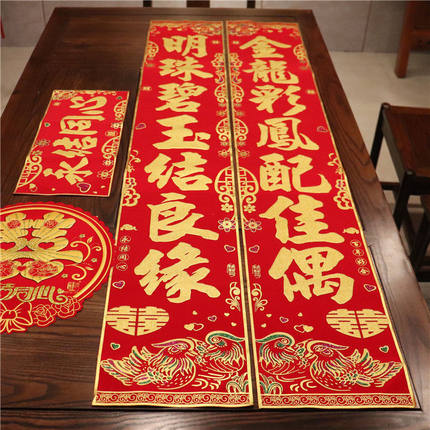 金龍彩鳳配佳偶
明珠碧玉结良缘
永结同心
百年好合
永结同心
囍
囍
囍